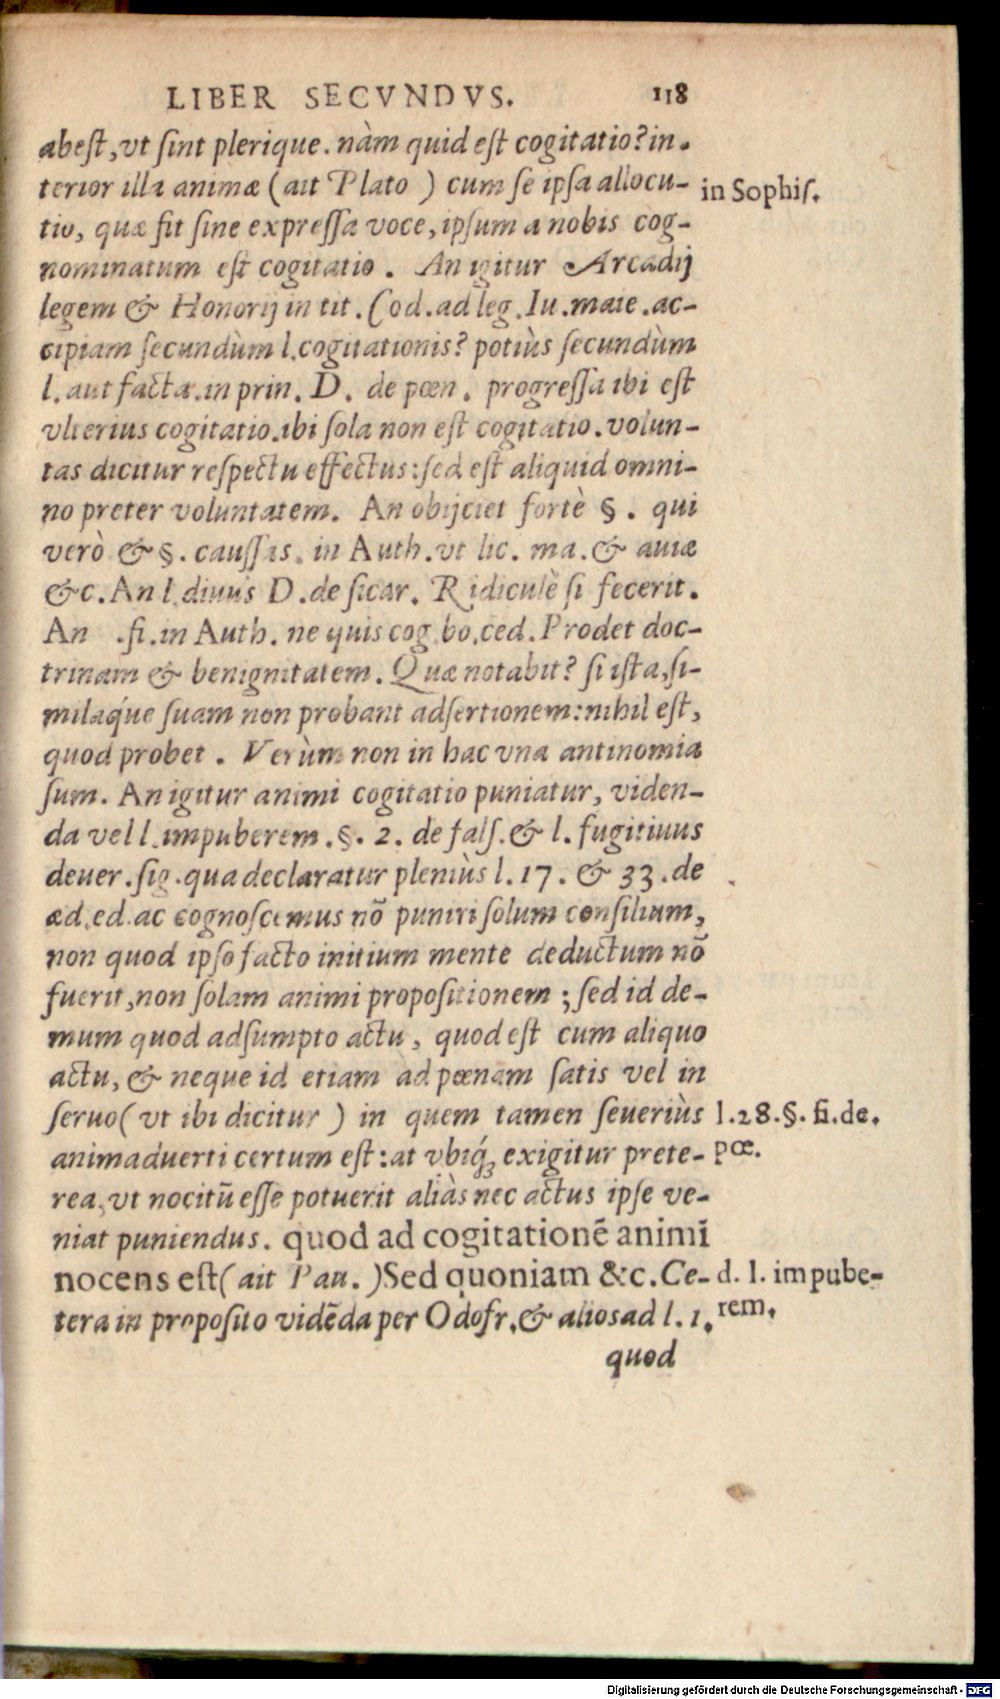 LIBER SECVNDVS. 118
abest, vt sint plerique. nàm quid est cogitatio? in-
terior illa animæ (ait Plato ) cum se ipsa allocu-
in Sophis.
tio, quæ fit sine expressa voce, ipsum a nobis cog-
nominatum est cogitatio . An igitur Arcadij
legem & Honorij in tit. Cod. ad leg. Iu. maie. ac-
cipiam secundùm l. cogitationis? potiùs secundùm
l. aut facta. in prin. D. de pœn. progressa ibi est
vlterius cogitatio. ibi sola non est cogitatio. volun-
tas dicitur respectu effectus: sed est aliquid omni-
no preter voluntatem. An obijciet fortè §. qui
verò & §. caussas. in Auth. vt lic. ma. & auiæ
&c. An l. diuus D. de sicar. Ridiculè si fecerit.
An .fi. in Auth. ne quis cog. bo. ced. Prodet doc-
trinam & benignitatem. Quæ notabit? si ista, si-
miláque suam non probant adsertionem: nihil est,
quod probet . Verùm non in hac vna antinomia
sum. An igitur animi cogitatio puniatur, viden-
da vel l. impuberem. §. 2. de fals. & l. fugitiuus
de uer. sig. qua declaratur pleniùs l. 17. & 33. de
æd. ed. ac cognoscemus nō puniri solum consilium,
non quod ipso facto initium mente deductum nō
fuerit, non solam animi propositionem ; sed id de-
mum quod adsumpto actu, quod est cum aliquo
actu, & neque id etiam ad pœnam satis vel in
seruo ( vt ibi dicitur ) in quem tamen seueriùs
l. 28. §. fi. de.
pœ.
animaduerti certum est: at vbiq́ꝫ exigitur prete-
rea, vt nocitū esse potuerit aliàs nec actus ipse ve-
niat puniendus. quod ad cogitationē animi
nocens est ( ait Pau. ) Sed quoniam &c. Ce-
d. l. impube-
rem.
tera in proposito vidēda per Odofr. & alios ad l. 1.
quod
Digitalisierung gefördert durch die Deutsche Forschungsgemeinschaft - DFG